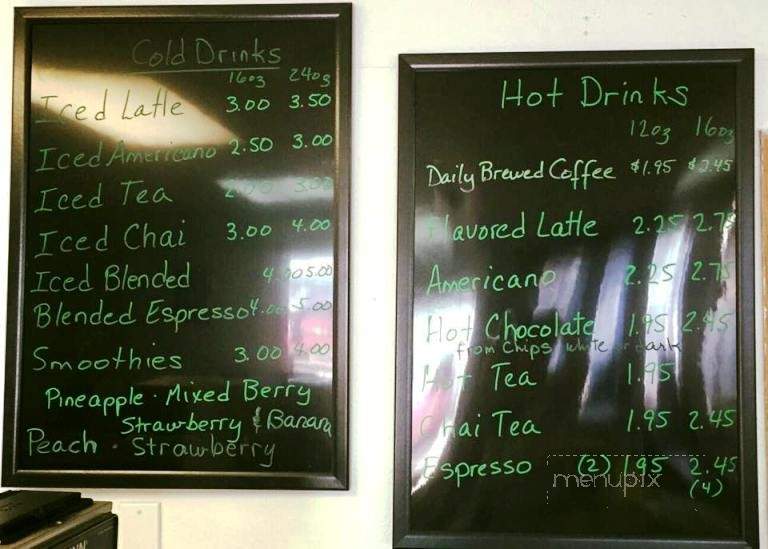 Cold Drinks
16oz 24oz
Iced Latte 3.00 3.50
Iced Americano 2.50 3.00
Iced Tea 2.00 3.00
Iced Chai 3.00 4.00
Iced Blended 4.00 5.00
Blended Espresso 4.00 5.00
Smoothies 3.00 4.00
Pineapple · Mixed Berry
Strawberry & Banana
Peach · Strawberry
Hot Drinks
12oz 16oz
Daily Brewed Coffee $1.95 $2.45
Flavored Latte 2.25 2.75
Americano 2.25 2.75
Hot Chocolate 1.95 2.45
from chips white or dark
Hot Tea 1.95
Chai Tea 1.95 2.45
Espresso (2) 1.95 2.45
(4)
menupix